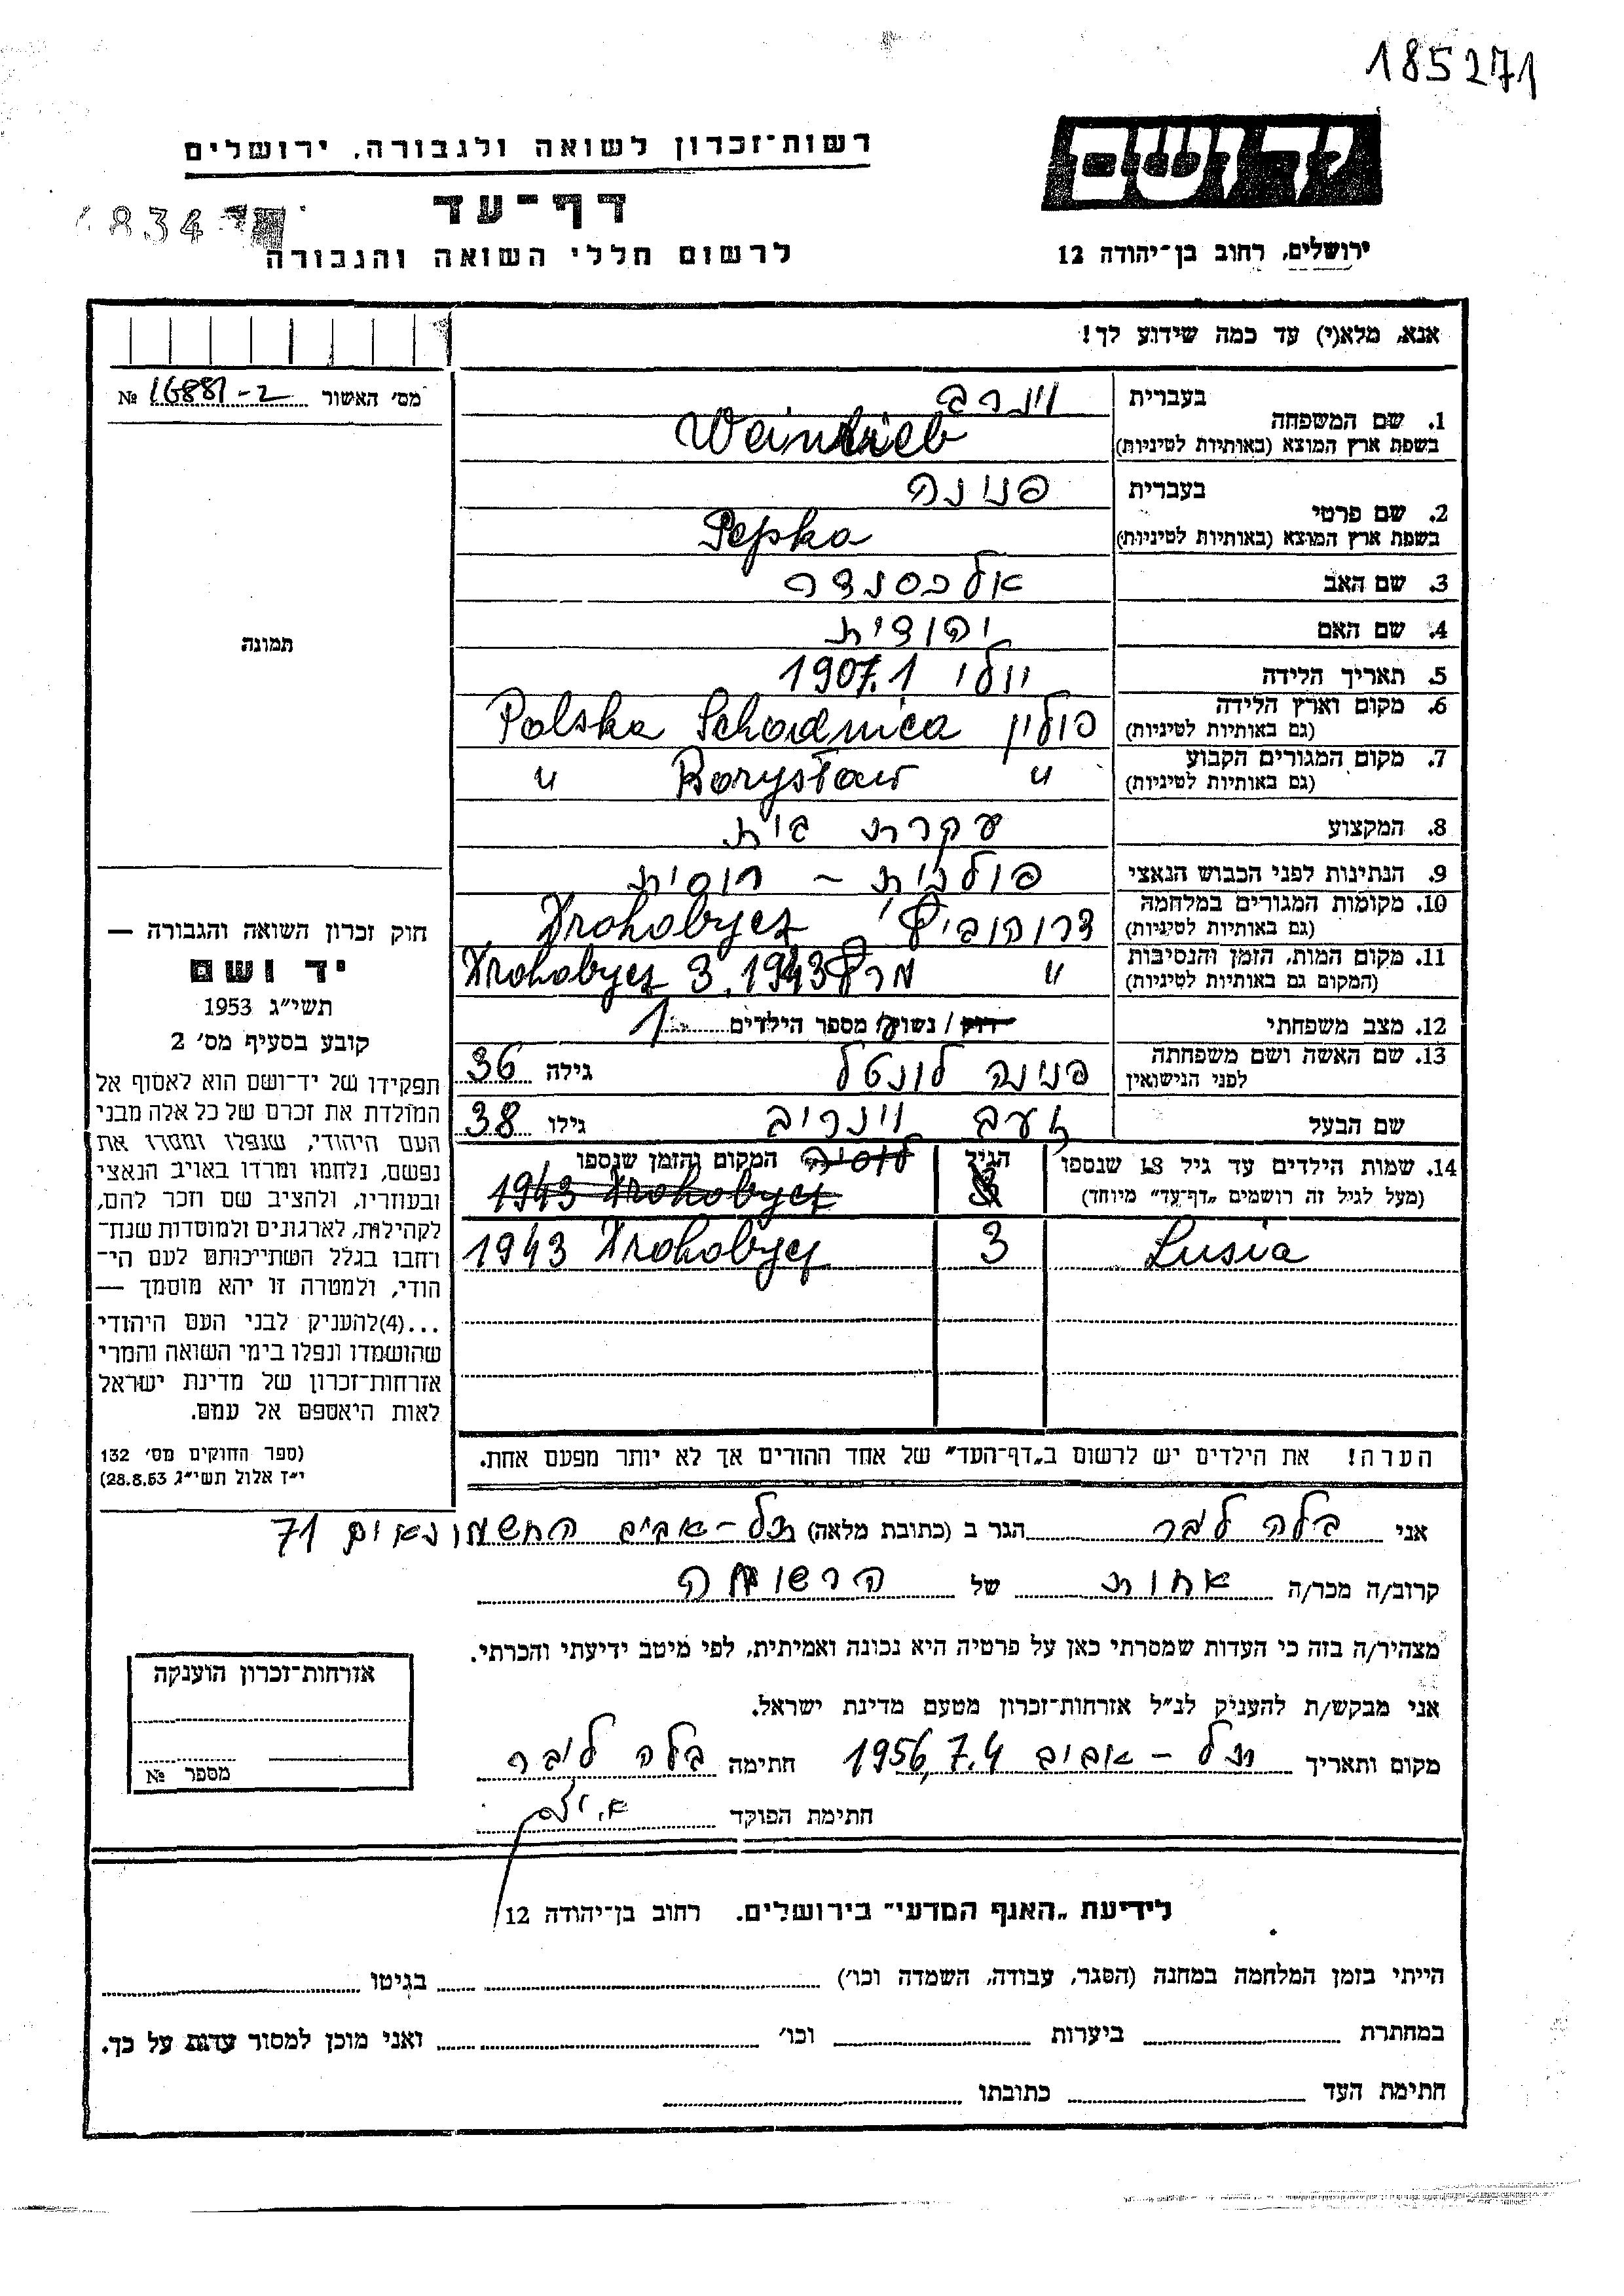 185271
יד ושם
רשות־זכרון לשואה ולגבורה. ירושלים
דף־עד
לרשום חללי השואה והגבורה
ירושלים, רחוב בן־יהודה 12
אנא, מלא(י) עד כמה שידוע לך!
מס׳ האשור 16881-2 №
בעברית וינרב
1. שם המשפחה
בשפת ארץ המוצא (באותיות לטיניות) Weinrieb
בעברית פנינה
2. שם פרטי
בשפת ארץ המוצא (באותיות לטיניות) Pepka
3. שם האב אלכסנדר
4. שם האם יהודית
5. תאריך הלידה יולי 1907.1
6. מקום וארץ הלידה
(גם באותיות לטיניות) פולין Schodnica Polska
7. מקום המגורים הקבוע
(גם באותיות לטיניות) " Borysław "
8. המקצוע עקרת בית
9. הנתינות לפני הכבוש הנאצי פולנית – רוסית
10. מקומות המגורים במלחמה
(גם באותיות לטיניות) דרוהוביץ' Drohobycz
11. מקום המות, הזמן והנסיבות
(המקום גם באותיות לטיניות) " מרץ 3.1943 Drohobycz
12. מצב משפחתי רווק / נשוי / מספר הילדים 1
13. שם האשה ושם משפחתה
לפני הנישואין פנינה לונטל גילה 36
שם הבעל זאב וינריב גילו 38
14. שמות הילדים עד גיל 18 שנספו הגיל המקום והזמן שנספו
(מעל לגיל זה רושמים „דף־עד" מיוחד) 3 Drohobycz 1943
Lusia 3 Drohobycz 1943
הערה! את הילדים יש לרשום ב„דף־העד" של אחד ההורים אך לא יותר מפעם אחת.
תמונה
חוק זכרון השואה והגבורה —
יד ושם
תשי״ג 1953
קובע בסעיף מס׳ 2
תפקידו של יד־ושם הוא לאסוף אל
המולדת את זכרם של כל אלה מבני
העם היהודי, שנפלו ומסרו את
נפשם, נלחמו ומרדו באויב הנאצי
ובעוזריו, ולהציב שם וזכר להם,
לקהילות, לארגונים ולמוסדות שנח־
רחבו בגלל השתייכותם לעם הי־
הודי, ולמטרה זו יהא מוסמך —
...(4)להעניק לבני העם היהודי
שהושמדו ונפלו בימי השואה והמרי
אזרחות־זכרון של מדינת ישראל
לאות היאספם אל עמם.
(ספר החוקים מס׳ 132
י״ז אלול תשי״ג 28.8.53)
אני בלה לבר הגר ב (כתובת מלאה) תל-אביב החשמונאים 71
קרוב/ה מכר/ה אחות של הרשומה
מצהיר/ה בזה כי העדות שמסרתי כאן על פרטיה היא נכונה ואמיתית, לפי מיטב ידיעתי והכרתי.
אני מבקש/ת להעניק לנ״ל אזרחות־זכרון מטעם מדינת ישראל.
מקום ותאריך תל-אביב 1956.7.4 חתימה בלה ליבר
חתימת הפוקד
אזרחות־זכרון הוענקה
מספר №
לידיעת „האגף המדעי" בירושלים. רחוב בן־יהודה 12
הייתי בזמן המלחמה במחנה (הסגר, עבודה, השמדה וכו׳) בגיטו
במחתרת ביערות וכו׳ ואני מוכן למסור עדות על כך.
חתימת העד כתובתו